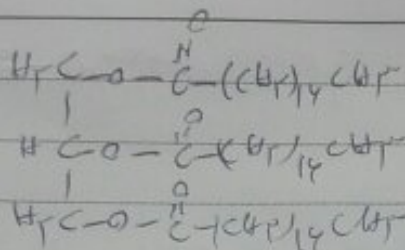 O
H₂C-O-C-(CH₂)₁₄CH₃
O
HC-O-C-(CH₂)₁₄CH₃
O
H₂C-O-C-(CH₂)₁₄CH₃